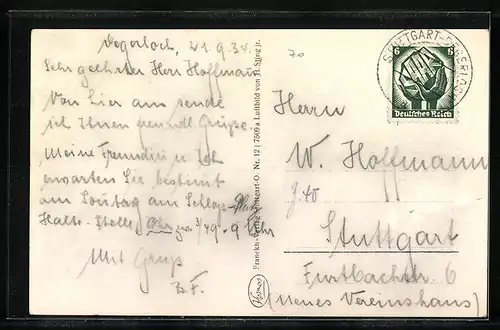 Degerloch, 21.9.34.
Sehr geehrter Herr Hoffmann
Von hier aus sende
ich Ihnen freundl Grüsse.
Meine Freundin u Ich
erwarten Sie bestimt
am Sontag am Schloss-Platz
Halte-Stelle, 3/49-9 Uhr
Mit Gruss
B.F.
70
Franckh-Verlag Stuttgart-O. Nr. 12 | 7509a Luftbild von H. Sting jr.
STUTTGART-DEGERLOCH
6 6
Deutsches Reich
Herrn
W. Hoffmann
Stuttgart
Furtbachstr. 6
(Neues Vereinshaus)